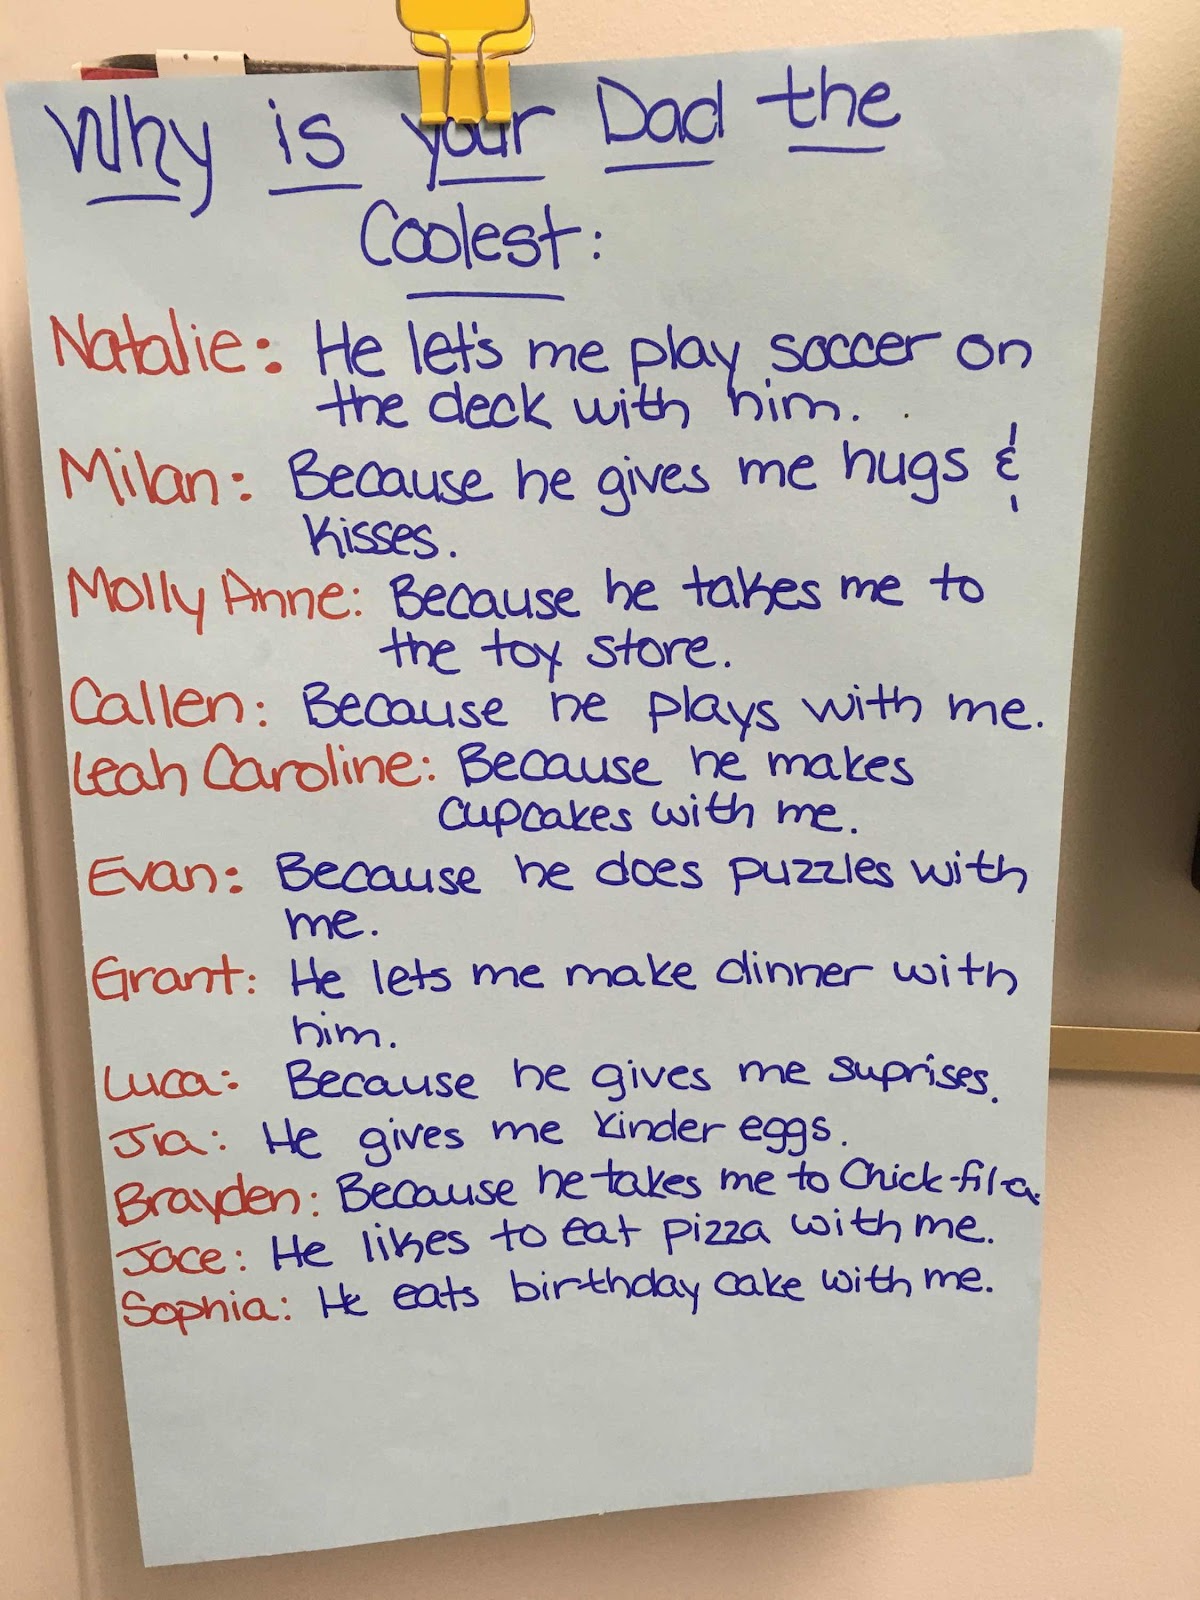 Why is your Dad the
Coolest:
Natalie: He let's me play soccer on
the deck with him.
Milan: Because he gives me hugs &
kisses.
Molly Anne: Because he takes me to
the toy store.
Callen: Because he plays with me.
Leah Caroline: Because he makes
cupcakes with me.
Evan: Because he does puzzles with
me.
Grant: He lets me make dinner with
him.
Luca: Because he gives me suprises.
Jia: He gives me kinder eggs.
Brayden: Because he takes me to Chick-fil-a.
Jace: He likes to eat pizza with me.
Sophia: He eats birthday cake with me.